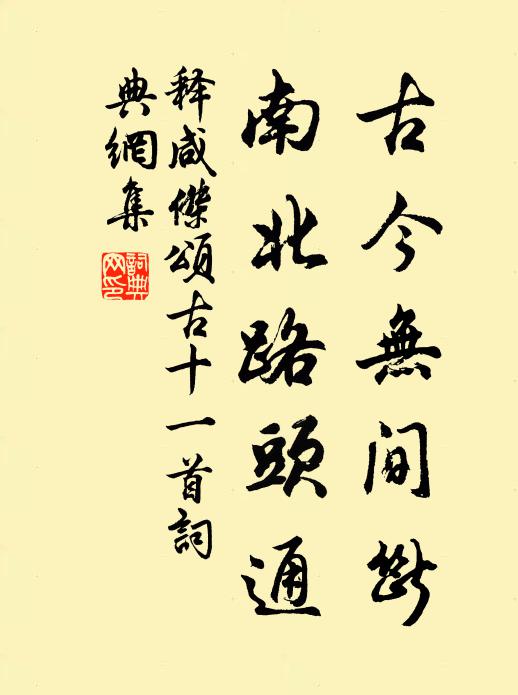 古今無間斷
南北路頭通
释咸傑頌古十一首詞
典網集
詞典网印